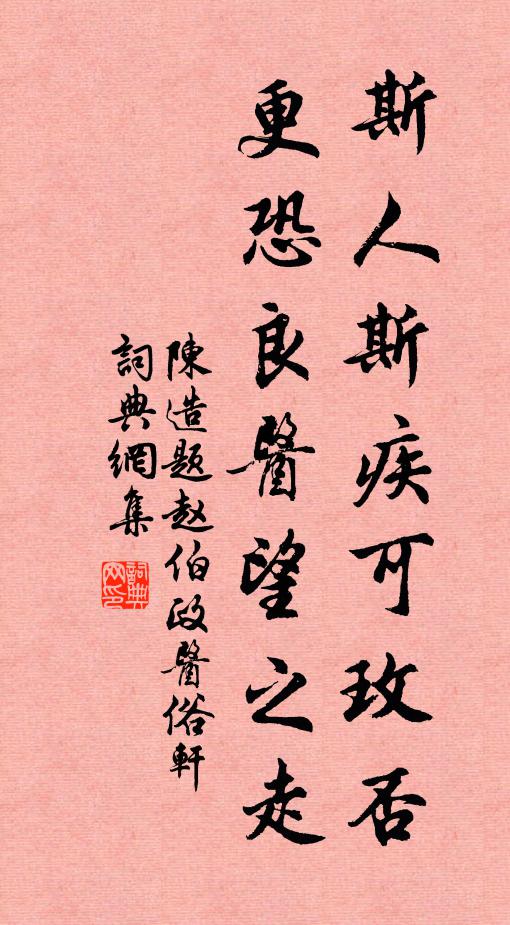 斯人斯疾可玫否
更恐良醫望之走
陳造題赵伯政醫俗軒
詞典網集
詞典
网印